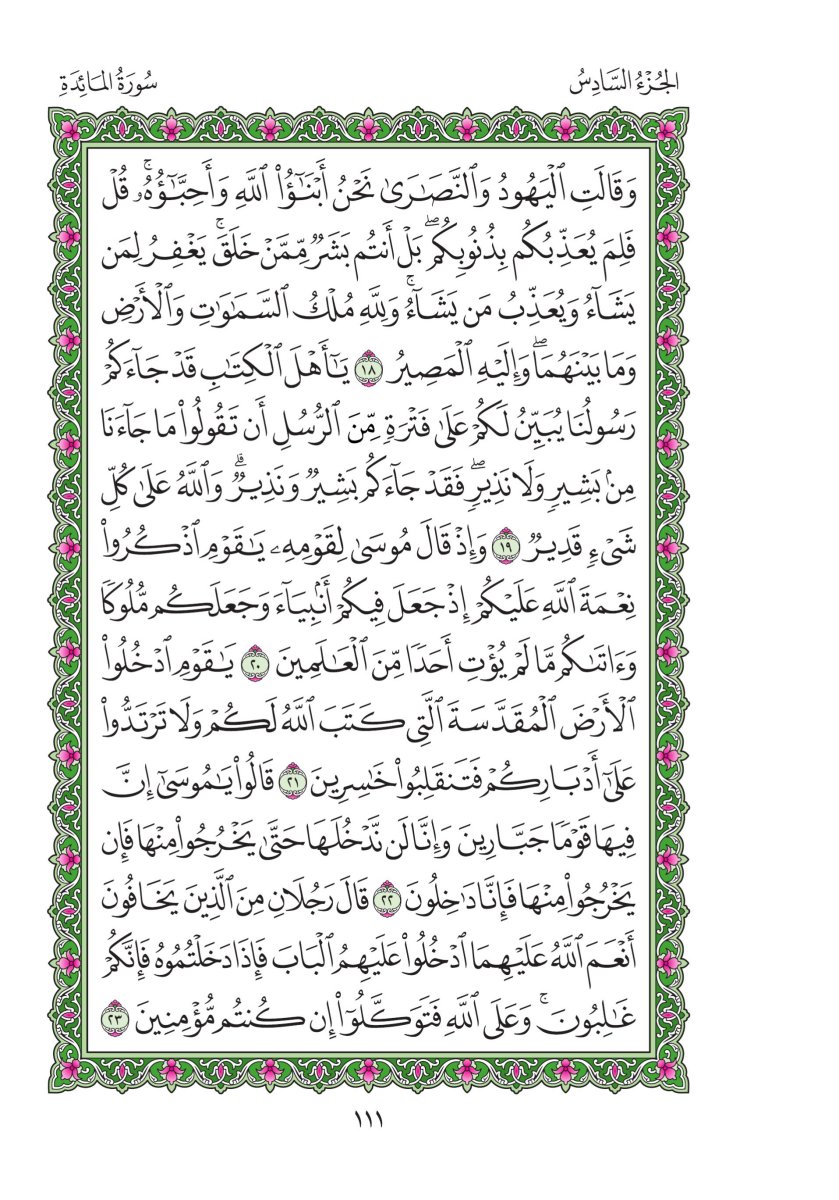 الجُزْءُ السَّادِسُ
سُورَةُ المَائِدَةِ
وَقَالَتِ ٱلۡيَهُودُ وَٱلنَّصَٰرَىٰ نَحۡنُ أَبۡنَٰٓؤُاْ ٱللَّهِ وَأَحِبَّٰٓؤُهُۥۚ قُلۡ
فَلِمَ يُعَذِّبُكُم بِذُنُوبِكُمۖ بَلۡ أَنتُم بَشَرٞ مِّمَّنۡ خَلَقَۚ يَغۡفِرُ لِمَن
يَشَآءُ وَيُعَذِّبُ مَن يَشَآءُۚ وَلِلَّهِ مُلۡكُ ٱلسَّمَٰوَٰتِ وَٱلۡأَرۡضِ
وَمَا بَيۡنَهُمَاۖ وَإِلَيۡهِ ٱلۡمَصِيرُ ١٨ يَٰٓأَهۡلَ ٱلۡكِتَٰبِ قَدۡ جَآءَكُمۡ
رَسُولُنَا يُبَيِّنُ لَكُمۡ عَلَىٰ فَتۡرَةٖ مِّنَ ٱلرُّسُلِ أَن تَقُولُواْ مَا جَآءَنَا
مِنۢ بَشِيرٖ وَلَا نَذِيرٖۖ فَقَدۡ جَآءَكُم بَشِيرٞ وَنَذِيرٞۗ وَٱللَّهُ عَلَىٰ كُلِّ
شَيۡءٖ قَدِيرٞ ١٩ وَإِذۡ قَالَ مُوسَىٰ لِقَوۡمِهِۦ يَٰقَوۡمِ ٱذۡكُرُواْ
نِعۡمَةَ ٱللَّهِ عَلَيۡكُمۡ إِذۡ جَعَلَ فِيكُمۡ أَنۢبِيَآءَ وَجَعَلَكُم مُّلُوكٗا
وَءَاتَىٰكُم مَّا لَمۡ يُؤۡتِ أَحَدٗا مِّنَ ٱلۡعَٰلَمِينَ ٢٠ يَٰقَوۡمِ ٱدۡخُلُواْ
ٱلۡأَرۡضَ ٱلۡمُقَدَّسَةَ ٱلَّتِي كَتَبَ ٱللَّهُ لَكُمۡ وَلَا تَرۡتَدُّواْ
عَلَىٰٓ أَدۡبَارِكُمۡ فَتَنقَلِبُواْ خَٰسِرِينَ ٢١ قَالُواْ يَٰمُوسَىٰٓ إِنَّ
فِيهَا قَوۡمٗا جَبَّارِينَ وَإِنَّا لَن نَّدۡخُلَهَا حَتَّىٰ يَخۡرُجُواْ مِنۡهَا فَإِن
يَخۡرُجُواْ مِنۡهَا فَإِنَّا دَٰخِلُونَ ٢٢ قَالَ رَجُلَانِ مِنَ ٱلَّذِينَ يَخَافُونَ
أَنۡعَمَ ٱللَّهُ عَلَيۡهِمَا ٱدۡخُلُواْ عَلَيۡهِمُ ٱلۡبَابَ فَإِذَا دَخَلۡتُمُوهُ فَإِنَّكُمۡ
غَٰلِبُونَۚ وَعَلَى ٱللَّهِ فَتَوَكَّلُوٓاْ إِن كُنتُم مُّؤۡمِنِينَ ٢٣
١١١